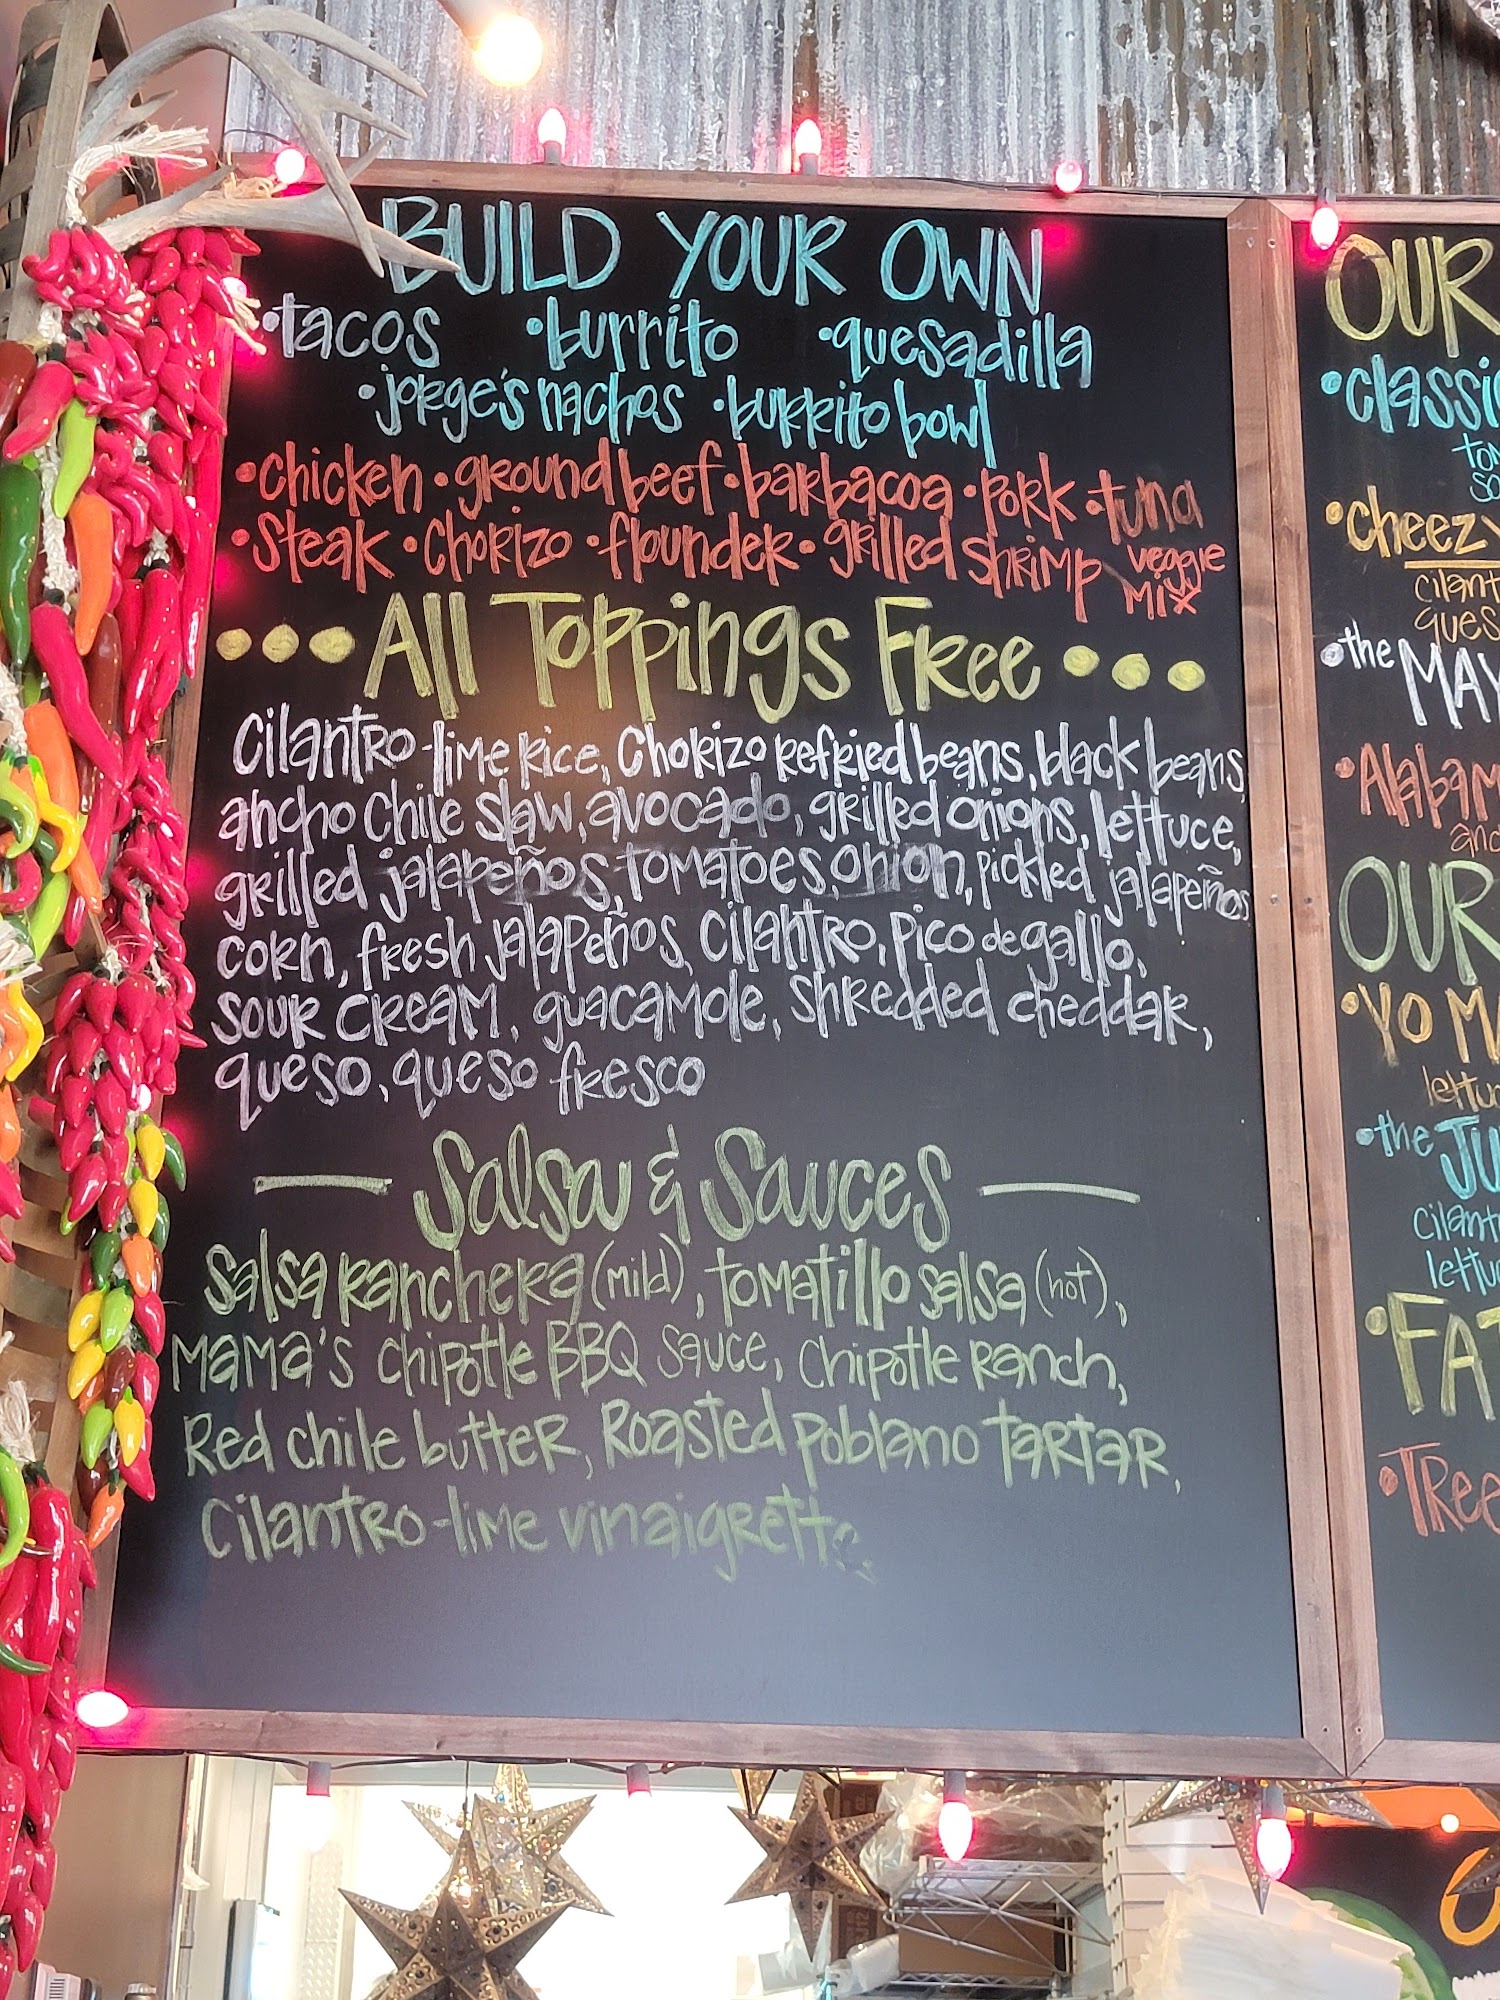 BUILD YOUR OWN
•tacos •burrito •quesadilla
•jorge's nachos •burrito bowl
•chicken •ground beef •barbacoa •pork •tuna
•steak •chorizo •flounder •grilled shrimp veggie
mix
•••All Toppings Free•••
Cilantro-lime rice, chorizo refried beans, black beans,
ancho chile slaw, avocado, grilled onions, lettuce,
grilled jalapeños, tomatoes, onion, pickled jalapeños
corn, fresh jalapeños, cilantro, pico de gallo,
sour cream, guacamole, shredded cheddar,
queso, queso fresco
— Salsa & Sauces —
Salsa ranchera (mild), tomatillo salsa (hot),
Mama's chipotle BBQ sauce, chipotle ranch,
Red chile butter, Roasted poblano tartar,
Cilantro-lime vinaigrette
OUR
•classic
•cheezy
cilant
ques
•the MAY
•Alabam
and
OUR
•YO MA
lettuc
•the JU
cilant
lettu
•FAT
•TRee